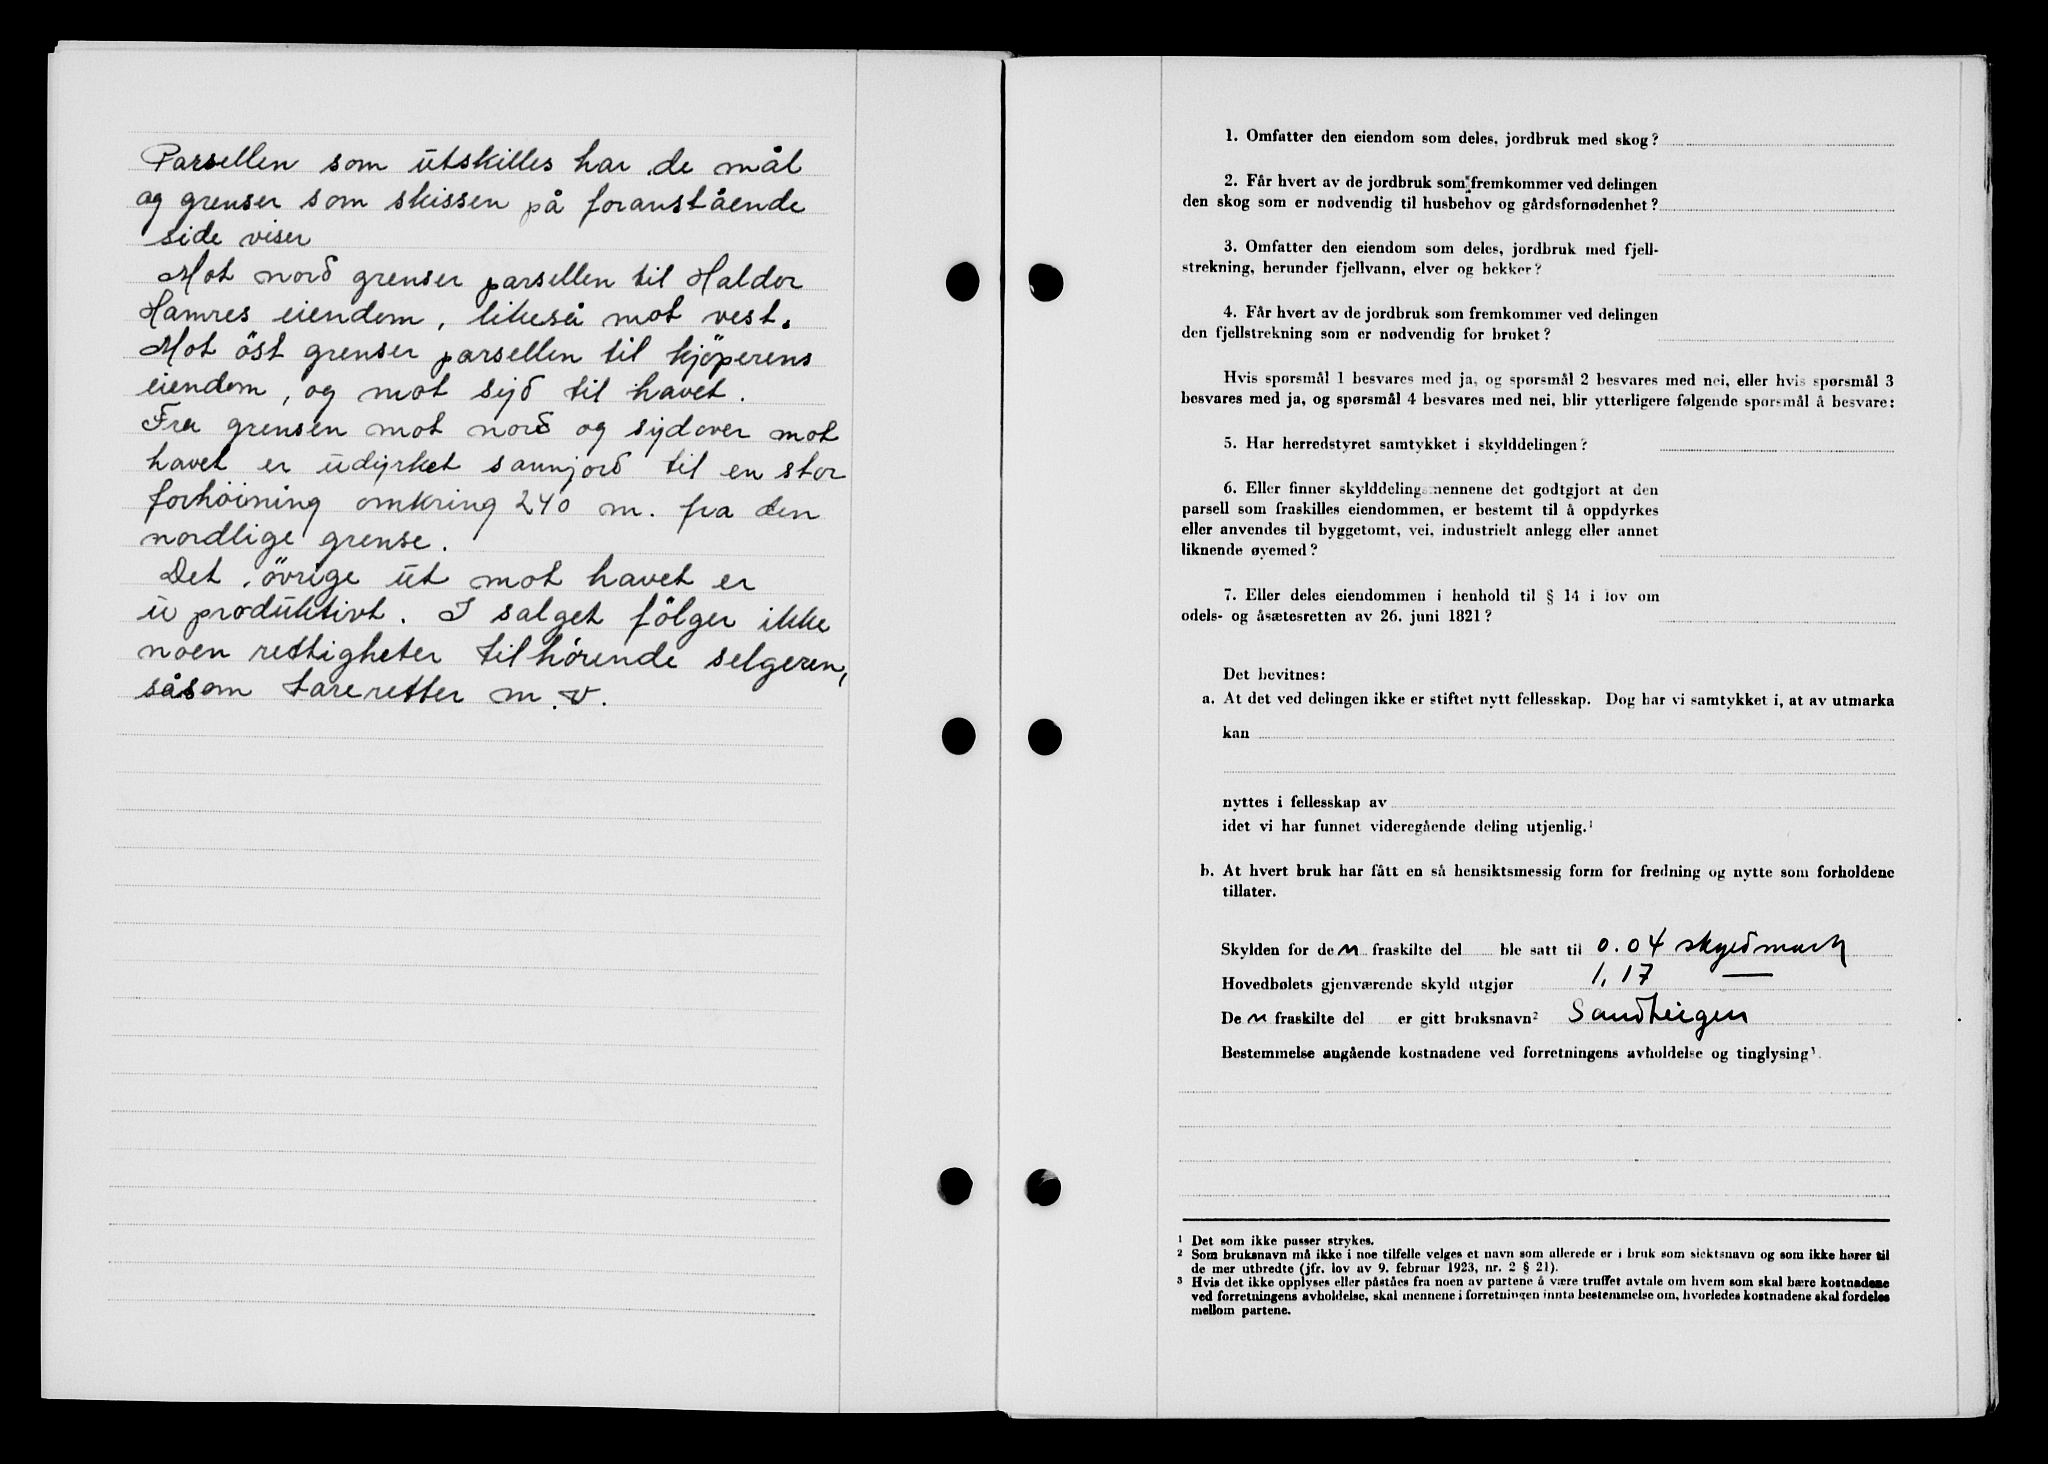 Parsellen som utskilles har de mål
og grenser som skissen på foranstående
side viser
Mot nord grenser parsellen til Haldor
Hamres eiendom, likeså mot vest.
Mot öst grenser parsellen til kjöperens
eiendom, og mot syd til havet.
Fra grensen mot nord og sydover mot
havet er udyrket sannjord til en stor
forhöining omkring 240 m. fra den
nordlige grense.
Det övrige ut mot havet er
uproduktivt. I salget fölger ikke
noen rettigheter tilhørende selgeren,
såsom tareretter m.v.
1. Omfatter den eiendom som deles, jordbruk med skog?
2. Får hvert av de jordbruk som fremkommer ved delingen
den skog som er nødvendig til husbehov og gårdsfornødenhet?
3. Omfatter den eiendom som deles, jordbruk med fjell-
strekning, herunder fjellvann, elver og bekker?
4. Får hvert av de jordbruk som fremkommer ved delingen
den fjellstrekning som er nødvendig for bruket?
Hvis spørsmål 1 besvares med ja, og spørsmål 2 besvares med nei, eller hvis spørsmål 3
besvares med ja, og spørsmål 4 besvares med nei, blir ytterligere følgende spørsmål å besvare:
5. Har herredstyret samtykket i skylddelingen?
6. Eller finner skylddelingsmennene det godtgjort at den
parsell som fraskilles eiendommen, er bestemt til å oppdyrkes
eller anvendes til byggetomt, vei, industrielt anlegg eller annet
liknende øyemed?
7. Eller deles eiendommen i henhold til § 14 i lov om
odels- og åsætesretten av 26. juni 1821?
Det bevitnes:
a. At det ved delingen ikke er stiftet nytt fellesskap. Dog har vi samtykket i, at av utmarka
kan
nyttes i fellesskap av
idet vi har funnet videregående deling utjenlig.¹
b. At hvert bruk har fått en så hensiktsmessig form for fredning og nytte som forholdene
tillater.
Skylden for den fraskilte del ble satt til 0.04 skyldmark
Hovedbølets gjenværende skyld utgjør 1,17 —
Den fraskilte del er gitt bruksnavn² Sandteigen
Bestemmelse angående kostnadene ved forretningens avholdelse og tinglysing³.
¹ Det som ikke passer strykes.
² Som bruksnavn må ikke i noe tilfelle velges et navn som allerede er i bruk som slektsnavn og som ikke hører til
de mer utbredte (jfr. lov av 9. februar 1923, nr. 2 § 21).
³ Hvis det ikke opplyses eller påståes fra noen av partene å være truffet avtale om hvem som skal bære kostnadene
ved forretningens avholdelse, skal mennene i forretningen innta bestemmelse om, hvorledes kostnadene skal fordeles
mellom partene.